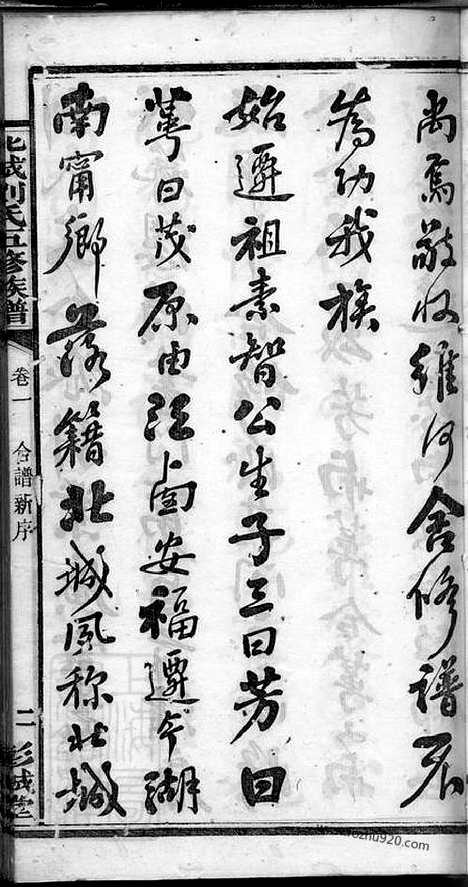 尚焉敬收維何舍修譜不
為功我族
始遷祖素智公生子三曰芳曰
萼曰茂原由江西安福遷今湖
南甯鄉落籍北城風称北城
北城刘氏五修族譜
卷一
合譜新序
二
彭城堂
zhu920.com